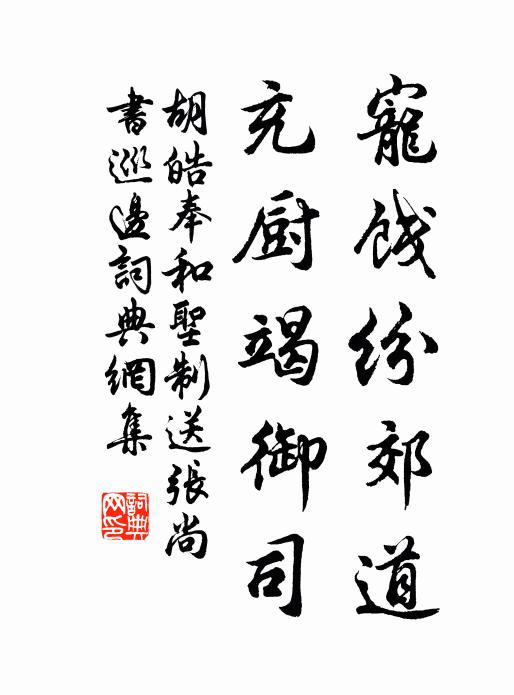 寵餞紛郊道
充厨竭御司
胡皓奉和聖制送張尚
書巡邊詞典網集
詞典
网印